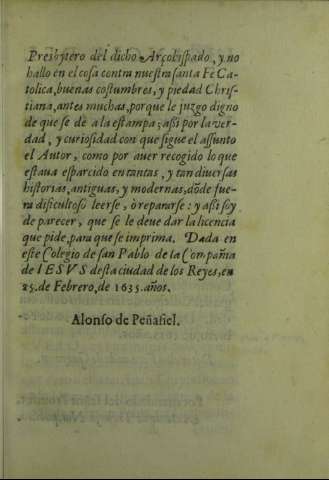 Presbytero del dicho Arçobispado, y no
hallo en el cosa contra nuestra santa Fè Ca-
tolica, buenas costumbres, y piedad Chris-
tiana, antes muchas, porque le juzgo digno
de que se dè a la estampa; assi por la ver-
dad, y curiosidad con que sigue el assunto
el Autor, como por auer recogido lo que
estaua esparcido en tantas, y tan diuersas
historias, antiguas, y modernas, dõde fue-
ra dificultoso leerse, ò repararse: y assi soy
de parecer, que se le deue dar la licencia
que pide, para que se imprima. Dada en
este Colegio de san Pablo de la Compañia
de IESVS desta ciudad de los Reyes, en
25. de Febrero, de 1635. años.
Alonso de Peñafiel.